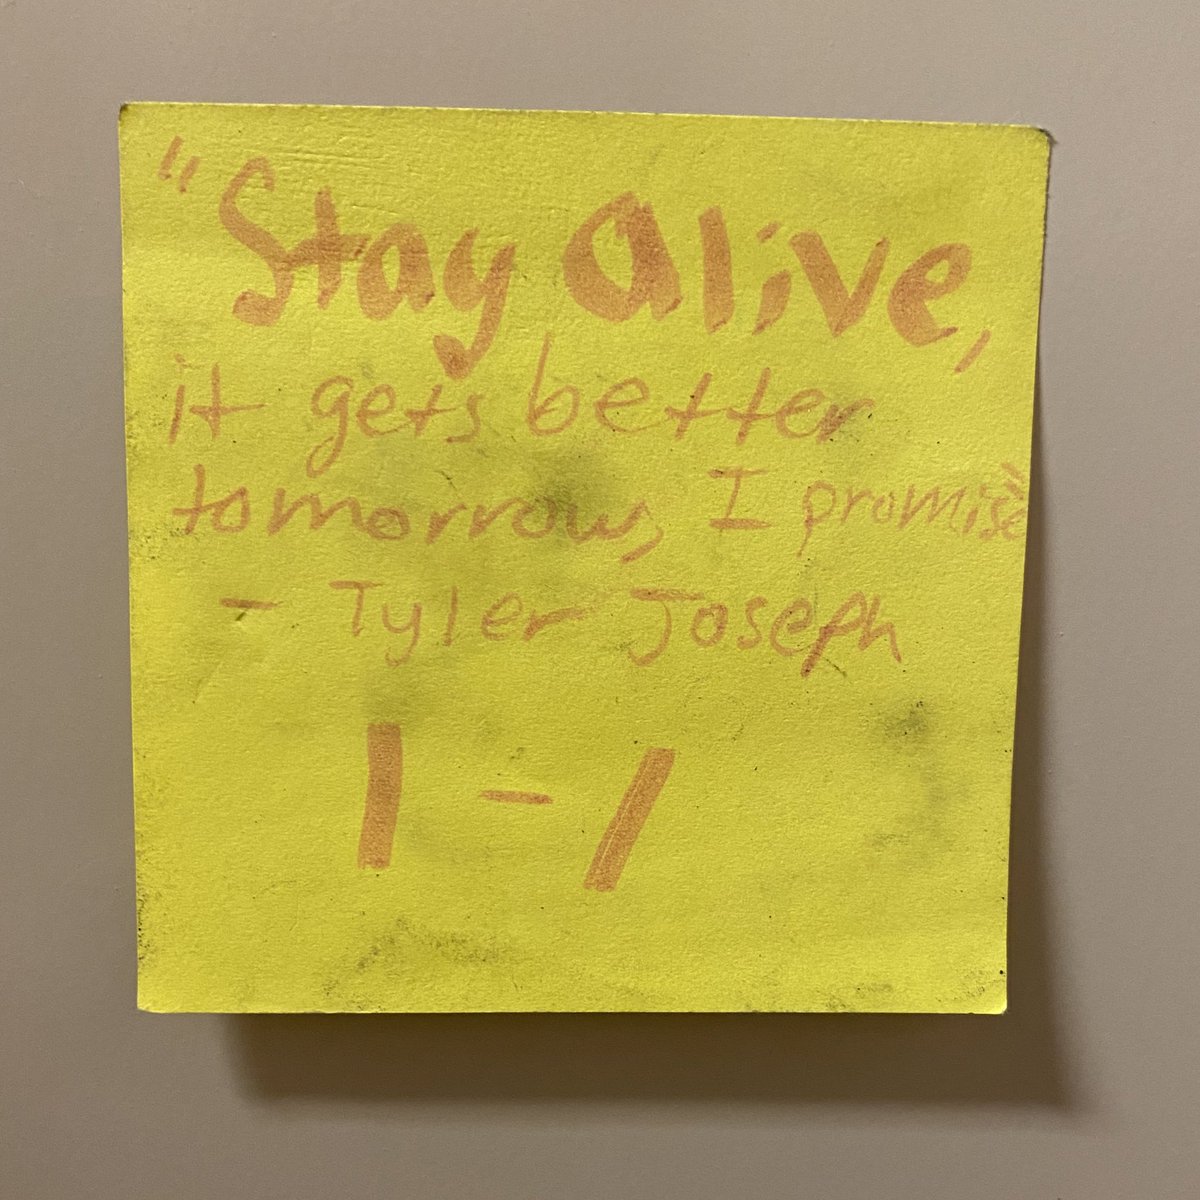 "Stay alive,
it gets better
tomorrow, I promise"
- Tyler Joseph
| - /